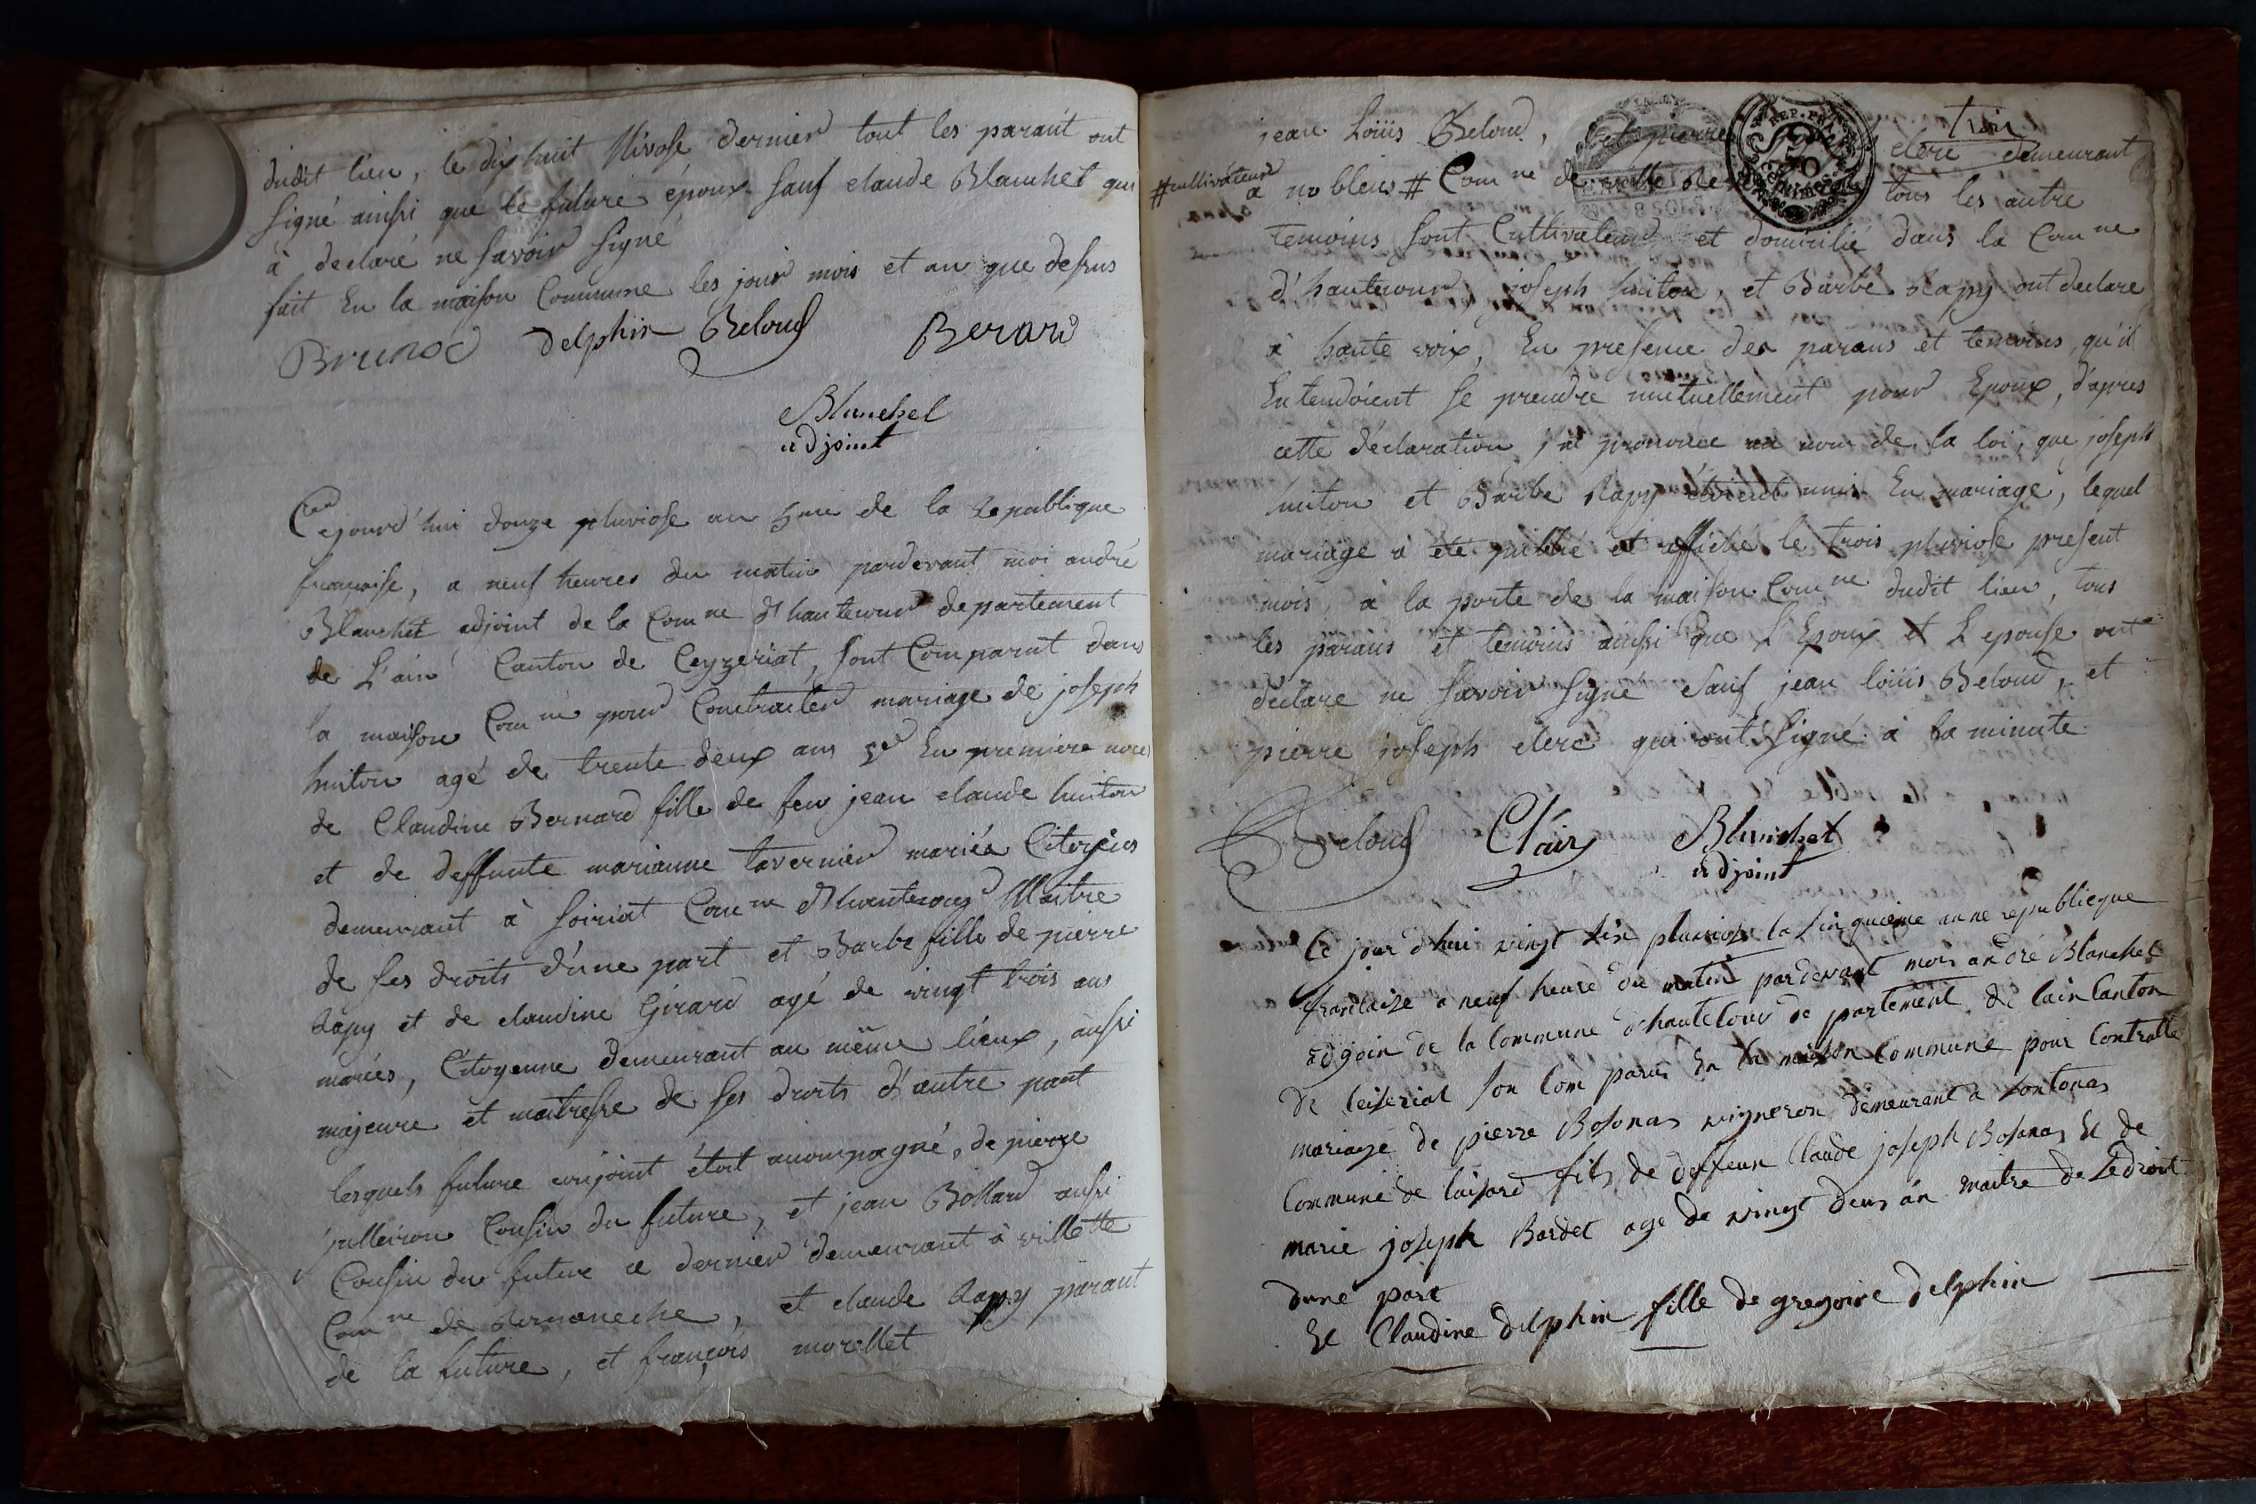 dudit lieu, le dix huit Nivose dernier tout les parant ont
signé ainssi que le future époux sauf claude Blanchet qui
à declaré ne savoir signé
fait En la maison Commune les jour mois et an que desus
Brunod delphin Beloud Berard
Blanchet
adjoint
Cejourd'hui douze pluviose an 5me de la Republique
francaise, a neuf heures du matin pardevant moi andré
Blanchet adjoint de la Comne d'hautecour departement
de L'ain Canton de Ceyzeriat, sont Comparut dans
la maison Comne pour Contracter mariage de joseph
huiton agé de trente deux ans en premiere noce
de Claudine Bernard fille de feu jean claude huiton
et de deffunte marianne tavernier mariés Citoyens
demeurant à soiriat Comne d'hautecour Maitre
de ses droits d'une part et Barbe fille de pierre
Rapy et de claudine Girard agé de vingt trois ans
mariés, Citoyenne demeurant au même lieux, aussi
majeure et maitresse de ses droits d'autre part
lesquels future conjoint étoit acompagné, de pierre
julleiron Cousin du future, et jean Bollard aussi
Cousin du future ce dernier demeurant à villette
Comne de Romaneche, et claude Rapy parant
de la future, et françois morellet
trois
jean Loüis Beloud, et pierre clerc demeurant
#cultivateur
a nobleus # Comne de tous les autre
temoins sont Cultivateur et domicilié dans la Comne
d'hautecour, joseph huiton, et Barbe Rapy ont declaré
à haute voix, En presence des parans et temoins, qu'il
Entendoient se prendre mutuellement pour Epoux, d'apres
cette déclaration j'ai prononce au nom de la loi, que joseph
huiton et Barbe Rapy étoient unis En mariage, lequel
mariage à eté publié et affiché le trois pluviose present
mois, à la porte de la maison Comne dudit lieu, tous
les parans et temoins ainssi que L'Epoux et L'epouse ont
declaré ne savoir signé sauf jean loüis Beloud, et
pierre joseph clerc qui ont signé à la minute
Beloud Clair Blanchet
adjoint
Ce jour d'hui vingt six pluviose la sinquieme anne republicque
francaize a neuf heure du matin pardevant moi andré Blanchet
adgoin de la Commune d'hautecour de partement de lain Canton
de Ceiseriat son Com parus En la maison Commune pour Contratte
mariage de pierre Bosonas vigneron demeurant a
Commune de fils de deffeun Claude joseph Bosonas Et de
marie joseph Bardet age de vingt deux an maitre de Zedroit
dune part
Et Claudine delphin fille de gregoire delphin